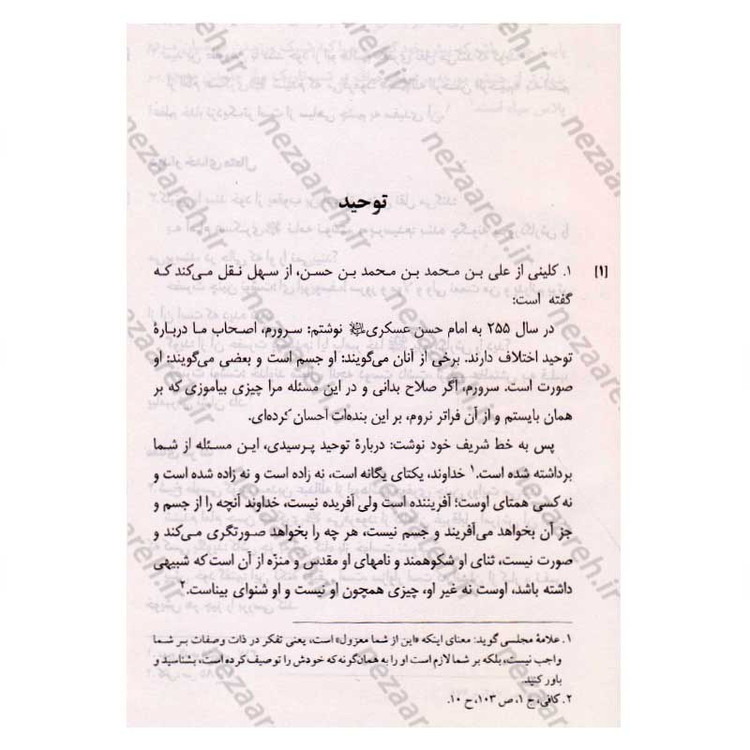 توحید
[۱] ۱. کلینی از علی بن محمد بن محمد بن حسن، از سهل نقل می‌کند که
گفته است:
در سال ۲۵۵ به امام حسن عسکری نوشتم: سرورم، اصحاب ما دربارهٔ
توحید اختلاف دارند. برخی از آنان می‌گویند: او جسم است و بعضی می‌گویند: او
صورت است. سرورم، اگر صلاح بدانی و در این مسئله مرا چیزی بیاموزی که بر
همان بایستم و از آن فراتر نروم، بر این بنده‌ات احسان کرده‌ای.
پس به خط شریف خود نوشت: دربارهٔ توحید پرسیدی، این مسئله از شما
برداشته شده است.۱ خداوند، یکتای یگانه است، نه زاده است و نه زاده شده است و
نه کسی همتای اوست؛ آفریننده است ولی آفریده نیست، خداوند آنچه را از جسم و
جز آن بخواهد می‌آفریند و جسم نیست، هر چه را بخواهد صورتگری می‌کند و
صورت نیست، ثنای او شکوهمند و نامهای او مقدس و منزّه از آن است که شبیهی
داشته باشد، اوست نه غیر او، چیزی همچون او نیست و او شنوای بیناست.۲
۱. علامهٔ مجلسی گوید: معنای اینکه «این از شما معزول» است، یعنی تفکر در ذات وصفات بر شما
واجب نیست، بلکه بر شما لازم است او را به همان‌گونه که خودش را توصیف کرده است، بشناسید و
باور کنید.
۲. کافی، ج ۱، ص ۱۰۳، ح ۱۰.
nezaareh.ir